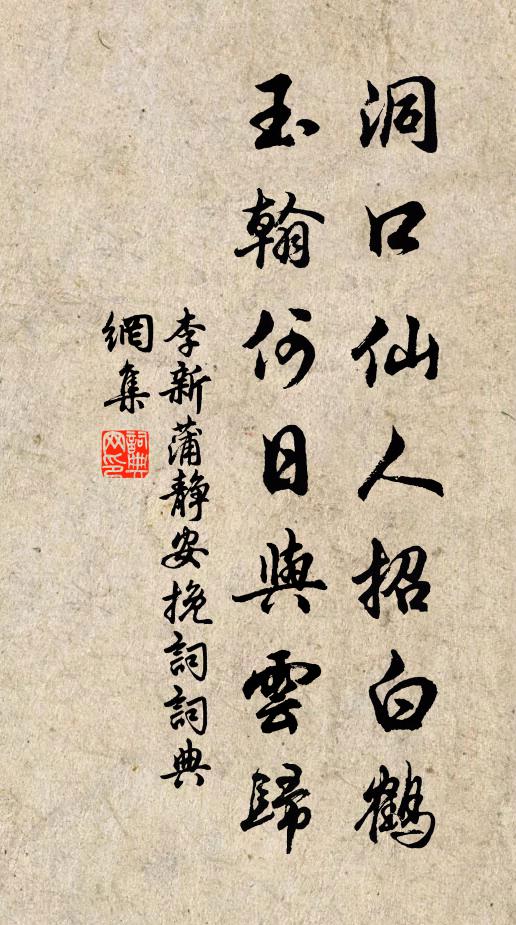 洞口仙人招白鶴
玉翰何日與雲歸
李新蒲靜安挽詞詞典
網集
詞典网